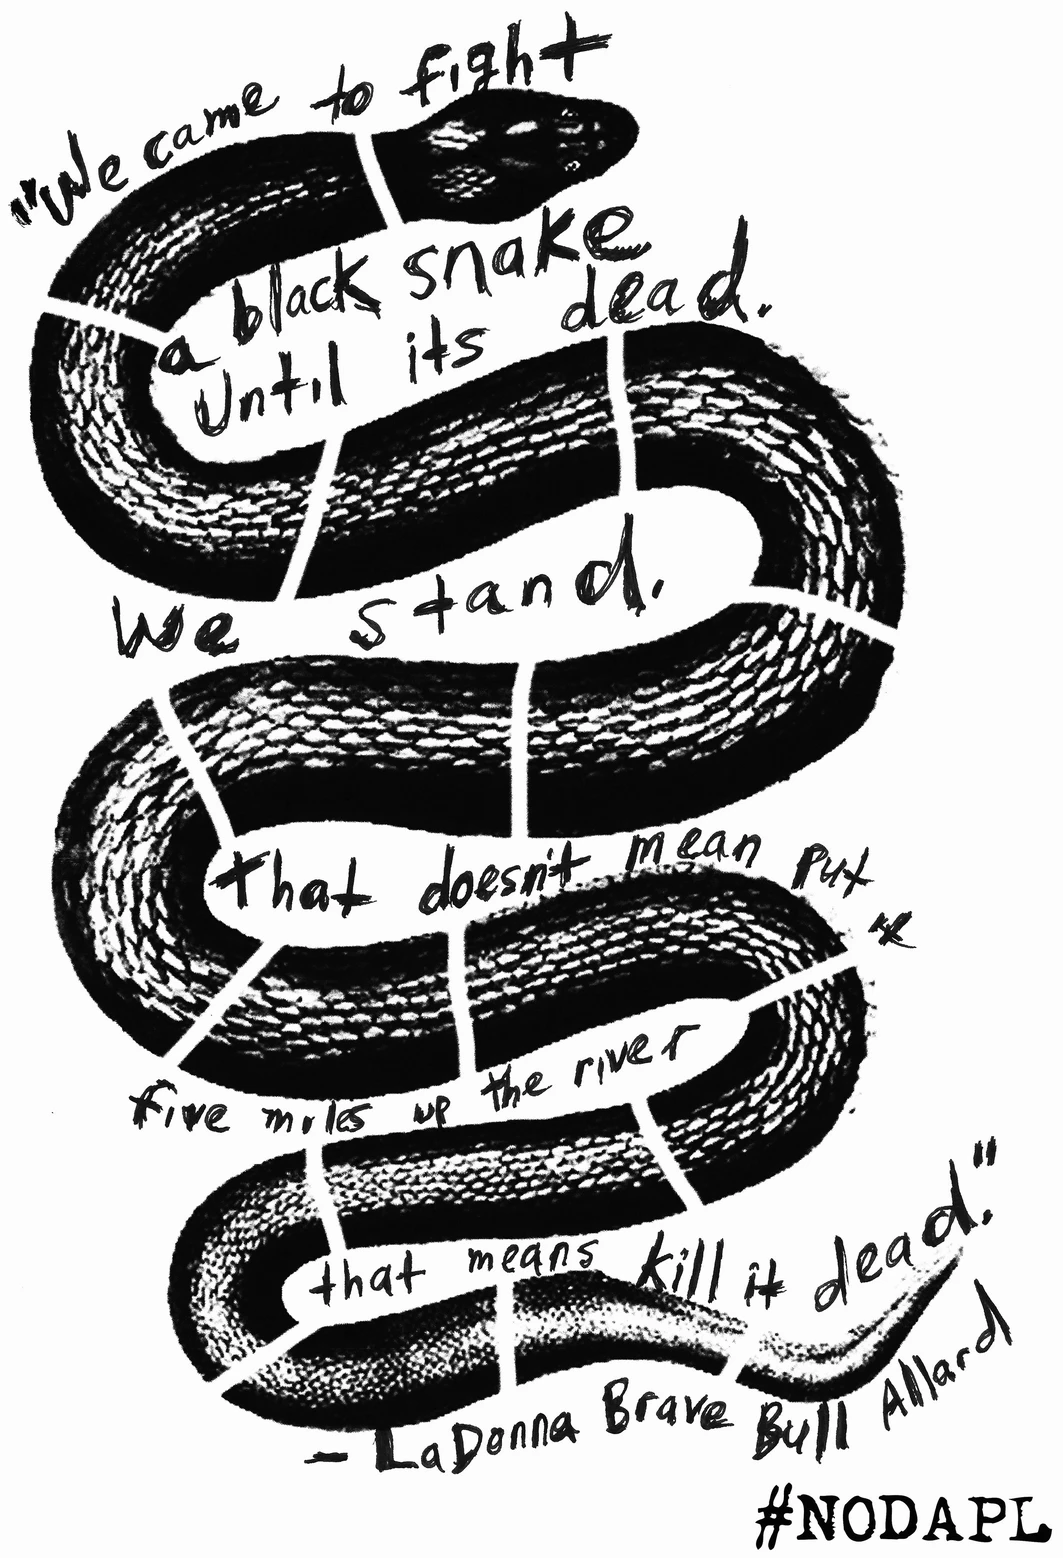 "We came to fight
a black snake
Until its dead.
We stand.
that doesn't mean put it
five miles up the river
that means kill it dead."
- LaDonna Brave Bull Allard
#NODAPL